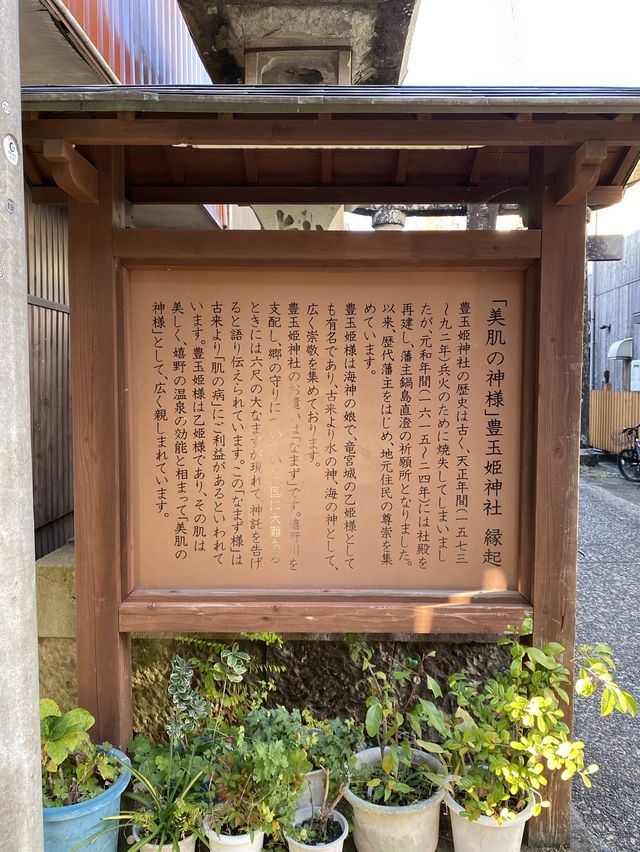 「美肌の神様」豊玉姫神社 縁起
豊玉姫神社の歴史は古く、天正年間(一五七三
〜九二年)兵火のために焼失してしまいまし
たが、元和年間(一六一五〜二四年)には社殿を
再建し、藩主鍋島直澄の祈願所となりました。
以来、歴代藩主をはじめ、地元住民の尊崇を集
めています。
豊玉姫様は海神の娘で、竜宮城の乙姫様として
も有名であり、古来より水の神、海の神として、
広く崇敬を集めております。
豊玉姫神社のお遣いは「なまず」です。嬉野川を
支配し、郷の守りに 国に大難ある
ときには六尺の大なまずが現れて、神託を告げ
ると語り伝えられています。この「なまず様」は
古来より「肌の病」にご利益があるといわれて
います。豊玉姫様は乙姫様であり、その肌は
美しく、嬉野の温泉の効能と相まって「美肌の
神様」として、広く親しまれています。